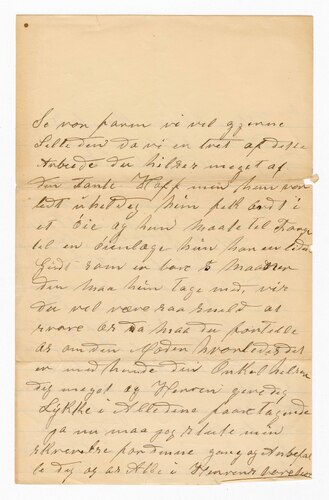 Se von faren vi vel gjerne
Selle den da vi er tret af dette
Arbeide du hilser meget af
din Tante Hoff men hun von
lidt uheldig hun fik ondt i
et Öie og hun maate til
til en öienlæge hun har en liden
Gidt som er bare to Maaneder
den maa hun tage med, vis
du vil være saa snild at
svare os da maa du fortelle
os om din Moder hvorledes det
er med hende din Onkel hilser
dig meget og Herren give dig
Lykke i Alle dine foretagende
ja nu maa jeg slute min
skrivelse for denne gang og Anbefal
le dig og os Alle i Herrens